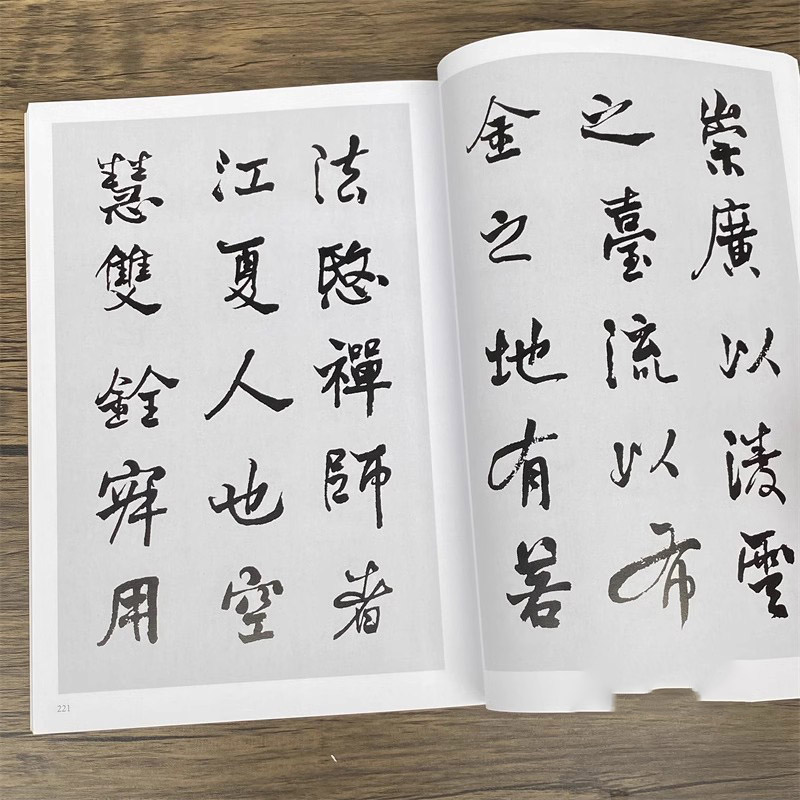 崇廣以淩雲
之臺流以布
金之地有若
法愍禪師者
江夏人也空
慧雙銓寂用
221